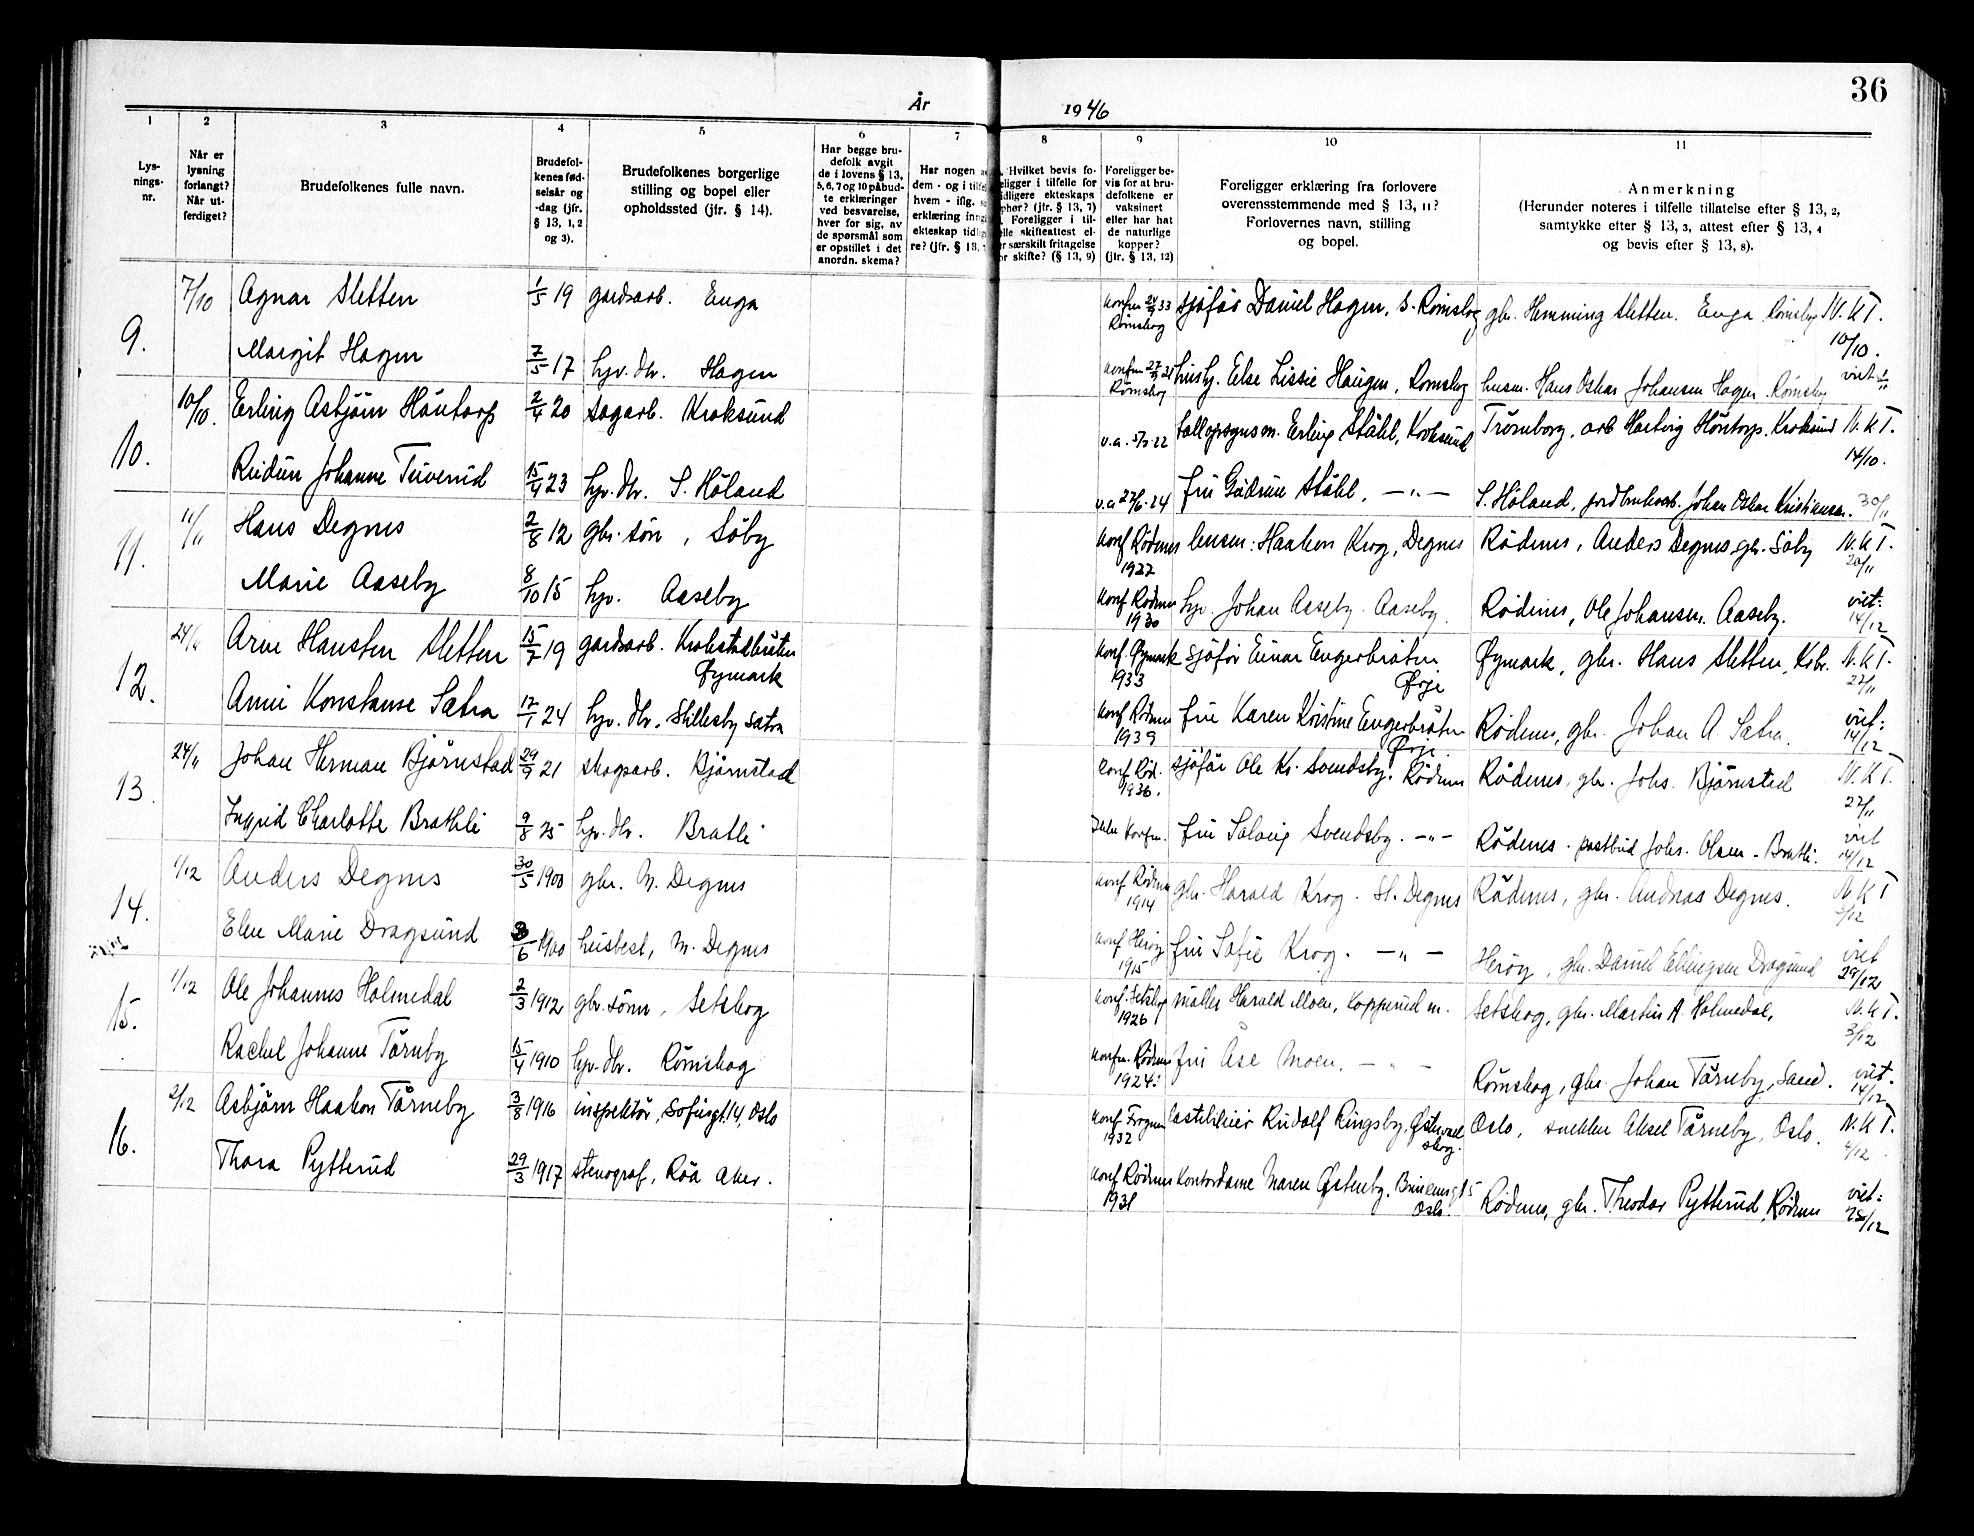 36
År 1946
1 2 3 4 5 6 7 8 9 10 11
Lys-
nings-
nr.
Når er
lysning
forlangt?
Når ut-
ferdiget?
Brudefolkenes fulle navn.
Brudefol-
kenes fød-
selsår og
-dag (jfr.
§ 13, 1, 2
og 3).
Brudefolkenes borgerlige
stilling og bopel eller
opholdssted (jfr. § 14).
Har begge bru-
defolk avgit
de i lovens § 13,
5, 6, 7 og 10 påbud-
te erklæringer
ved besvarelse,
hver for sig, av
de spørsmål som
er opstillet i det
anordn. skema?
Har nogen
dem - og i
hvem - ifig.
erklæring
ekteskap
re? (jfr. §
Hvilket bevis fo-
religger i tilfelle for
tidligere ekteskaps
ophør? (jfr. § 13, 7)
Foreligger i til-
felle skifteattest el-
ler særskilt fritagelse
for skifte? (§ 13, 9)
Foreligger be-
vis for at bru-
defolkene er
vaksinert
eller har hat
de naturlige
kopper?
(jfr. § 13, 12)
Foreligger erklæring fra forlovere
overensstemmende med § 13, 11?
Forlovernes navn, stilling
og bopel.
Anmerkning
(Herunder noteres i tilfelle tillatelse efter § 13, 2,
samtykke efter § 13, 3, attest efter § 13, 4
og bevis efter § 13, 8).
9. 7/10 Agnar Sletten 1/5 19 gardsarb. Enga konfm 24/9 33 Rømskog sjåfør Daniel Hagen, S. Rømskog gbr. Hemming Sletten. Enga Rømskog N.K.T. 10/10.
Margit Hagen 7/5 17 hjv. dtr. Hagen konfm 27/9 31 Rømskog husby. Else Lissie Haugen, Rømskog husm. Hans Oskar Johansen Hagen. Rømskog viet
10. 10/10. Erling Asbjørn Høntorp 2/4 20 sagarb. Kroksund v.a. 5/5-22 tollopsynsm. Erling Ståhl, Kroksund Trømborg, arb Hartvig Høntorp. Kroksund N.K.T. 14/10.
Reidun Johanne Tuverud 15/4 23 hjv. dtr. S. Høland v.a 27/6-24 fru Gudrun Ståhl. -"- S. Høland, jordbruksarb. Johan Oskar Kristiansen. 30/11
11. 11/11 Hans Degnes 2/8 12 gbr. søn, Søby konf Rødenes 1927 lensm: Haakon Krog, Degnes Rødenes, Anders Degnes gbr. Søby N.K.T. 20/11
Marie Aaseby 8/10 15 hjv. Aaseby konf Rødenes 1930 hjv. Johan Aaseby. Aaseby. Rødenes, Ole Johansen. Aaseby. viet: 14/12
12. 24/11 Arne Hansten Sletten 15/7 19 gardsarb. Krokstadbråten Øymark konf. Øymark 1933 sjåfør Einar Engerbråten Ørje Øymark, gbr. Hans Sletten, Krbr. N.K.T. 27/11
Anni Konstanse Sætra 17/1 24 hjv. dtr. Skillesby sætra konf Rødenes 1939 fru Karen Kristine Engerbråten Ørje Rødenes, gbr. Johan A. Sætra. viet: 14/12
13. 24/11 Johan Herman Bjørnstad 29/9 21 skogsarb. Bjørnstad konf Rød. 1936. sjåfør Ole Kr. Svendsby. Rødenes Rødenes, gbr. Johs. Bjørnstad N.K.T. 27/11
Ingrid Charlotte Brathli 9/8 25 hjv. dtr. Bratli Ikke konfm. fru Solveig Svendsby. -"- Rødenes. postbud Johs. Olsen - Bratli. viet 14/12
14. 1/12 Anders Degnes 30/5 1900 gbr. M. Degnes konf Rødenes 1914 gbr. Harald Krog. St. Degnes Rødenes, gbr. Andreas Degnes. N.K.T 3/12
Elen Marie Dragsund 6 1900 husbest, M. Degnes konf Herøy 1915 fru Sofie Krog. -"- Herøy, gbr. Daniel Ellingsen Dragsund viet 29/12
15. 1/12 Ole Johannes Holmedal 2/3 1912 gbr. sønn, Setskog konf. Setskog 1926 møller Harald Moen, Kopperud m. Setskog, gbr. Martin A. Holmedal, N.K.T. 3/12
Rachel Johanne Tårnby 15/4 1910 hjv. dtr. Rømskog konfm. Rødenes 1924: fru Åse Moen. -"- Rømskog, gbr. Johan Tårneby, Sand. viet. 14/12
16. 3/12 Asbjørn Haakon Tårneby 3/8 1916 inspektør, Sofiesgt. 14, Oslo konf Frogner 1932 lastebileier Rudolf Ringsby, Østervallskog. Oslo, snekker Aksel Tårneby, Oslo. N.K.T. 4/12
Thora Pytterud 29/3 1917 stenograf, Røa Aker. konf Rødenes 1931 kontordame Maren Østenby. Oslo. Rødenes, gbr. Theodor Pytterud, Rødenes viet: 28/12